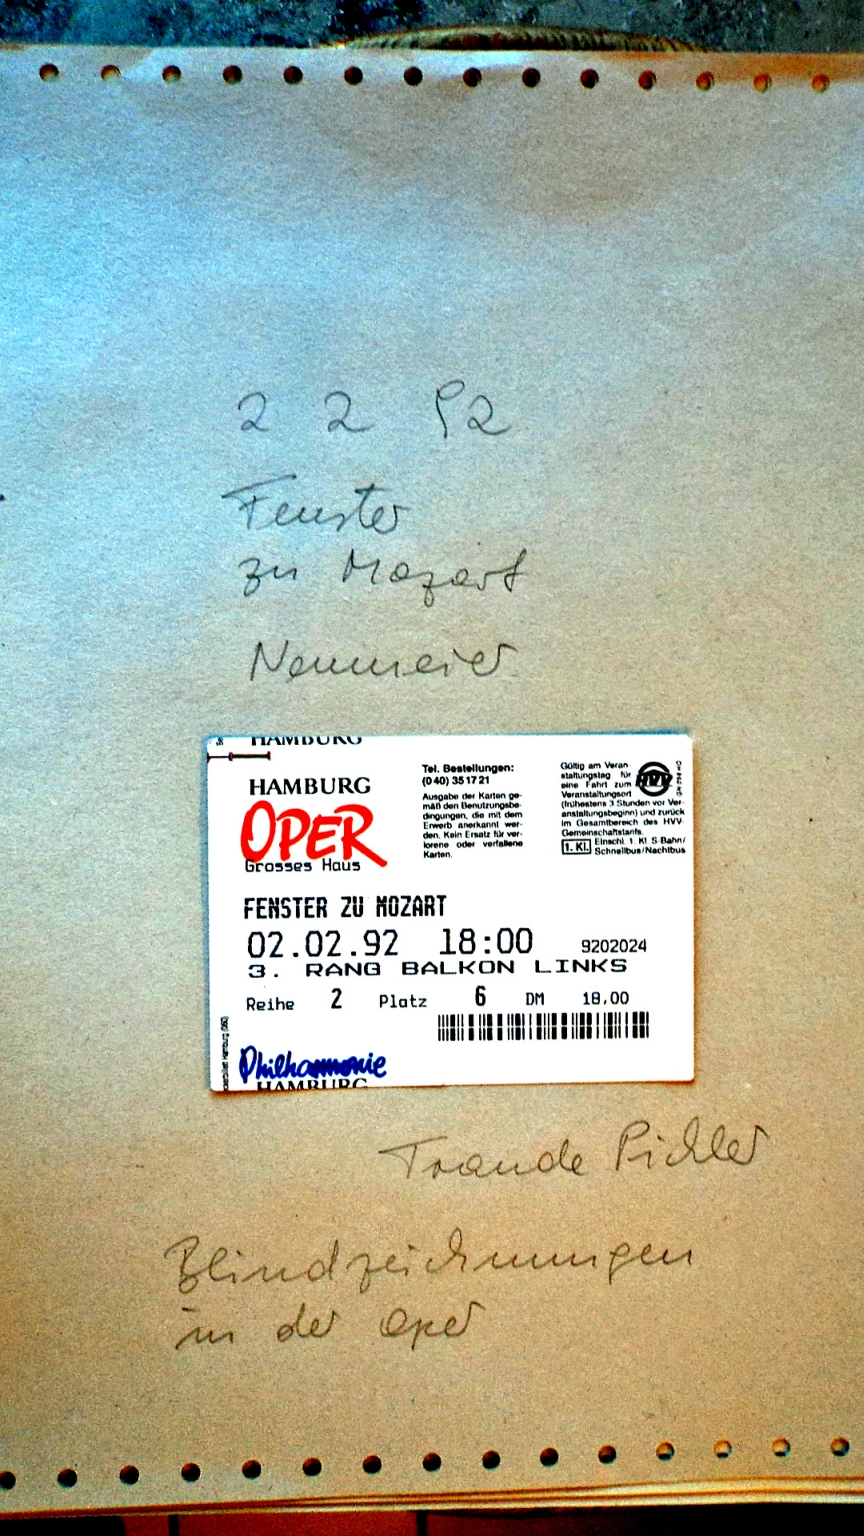 2 2 92
Fenster
zu Mozart
Neumeier
HAMBURG
HAMBURG
OPER
Grosses Haus
Tel. Bestellungen:
(0 40) 35 17 21
Ausgabe der Karten ge-
mäß den Benutzungsbe-
dingungen, die mit dem
Erwerb anerkannt wer-
den. Kein Ersatz für ver-
lorene oder verfallene
Karten.
Gültig am Veran
staltungstag für
eine Fahrt zum
Veranstaltungsort
(frühestens 3 Stunden vor Ver-
anstaltungsbeginn) und zurück
im Gesamtbereich des HVV-
Gemeinschaftstarifs.
1. Kl. Einschl. 1. Kl S-Bahn/
Schnellbus/Nachtbus
HVV
FENSTER ZU MOZART
02.02.92 18:00 9202024
3. RANG BALKON LINKS
Reihe 2 Platz 6 DM 18,00
Philharmonie
HAMBURG
Traude Pichler
Blindzeichnungen
in der Oper